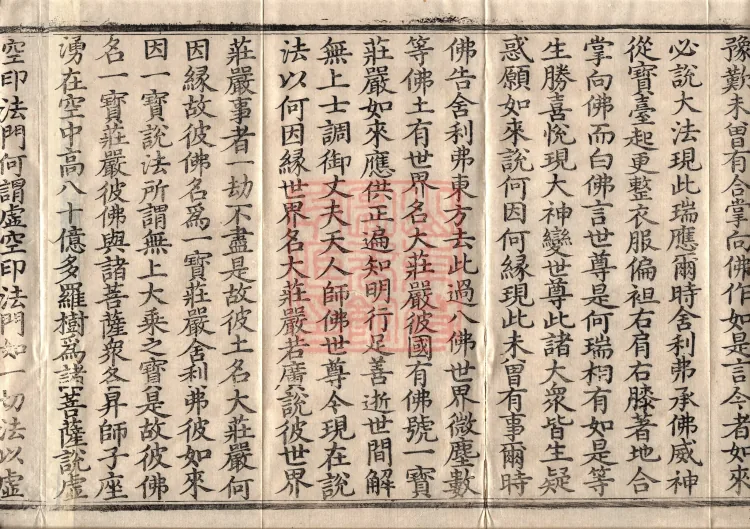 豫歎未曾有合掌向佛作如是言今者如來
必說大法現此瑞應爾時舍利弗承佛威神
從寶臺起更整衣服偏袒右肩右膝著地合
掌向佛而白佛言世尊是何瑞相有如是等
生勝喜悅現大神變世尊此諸大衆皆生疑
惑願如來說何因何緣現此未曾有事爾時
佛告舍利弗東方去此過八佛世界微塵數
等佛土有世界名大莊嚴彼國有佛號一寶
莊嚴如來應供正遍知明行足善逝世間解
無上士調御丈夫天人師佛世尊今現在說
法以何因緣世界名大莊嚴若廣說彼世界
莊嚴事者一劫不盡是故彼土名大莊嚴何
因緣故彼佛名爲一寶莊嚴舍利弗彼如來
因一寶說法所謂無上大乘之寶是故彼佛
名一寶莊嚴彼佛與諸菩薩衆各昇師子座
湧在空中高八十億多羅樹爲諸菩薩說虛
空印法門何謂虛空印法門如一切法以虛